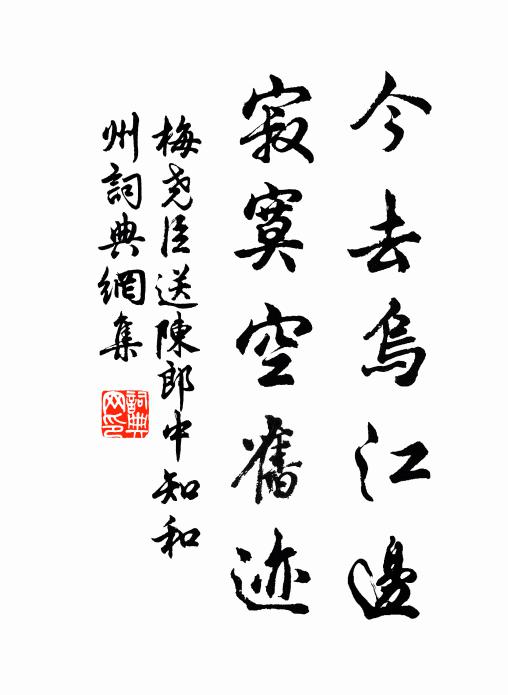 今去烏江邊
寂寞空舊迹
梅尧臣送陳郎中知和
州詞典網集
詞典网印